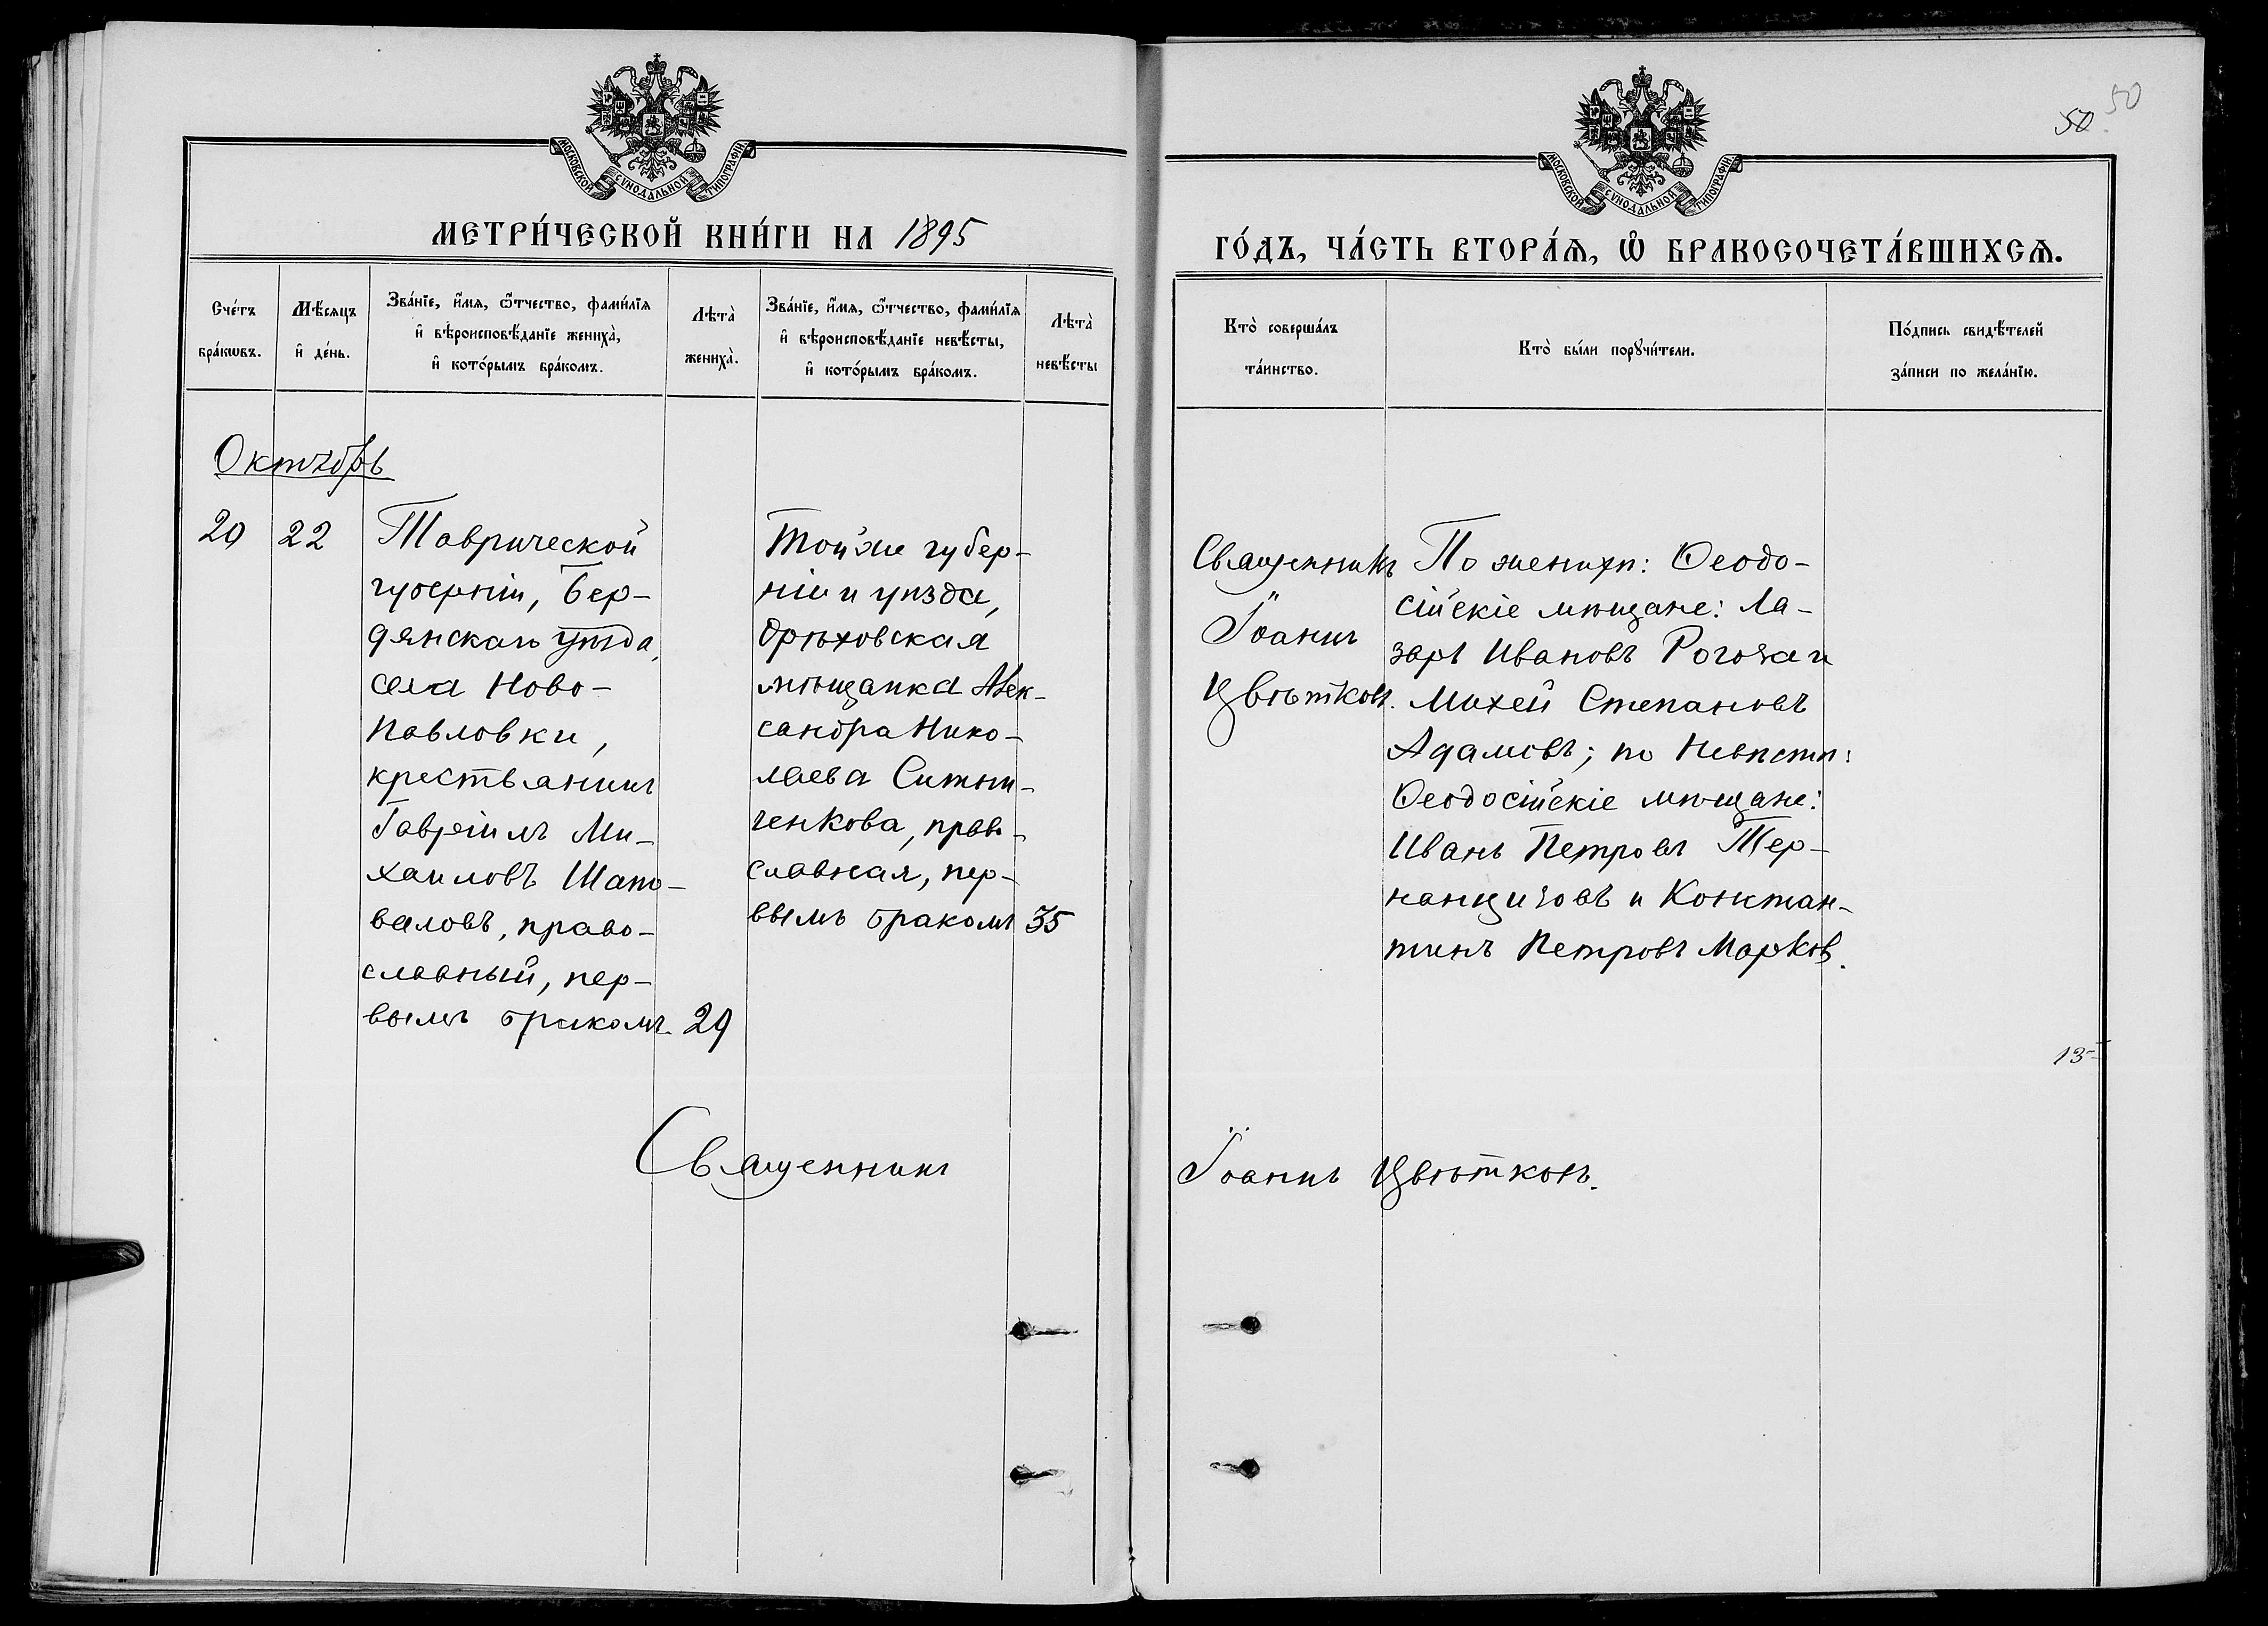 50 50
МОСКОВСКОЙ СѴНОДАЛЬНОЙ ТИПОГРАФІИ
МЕТРИ́ЧЕСКОЙ КНИ́ГИ НА 1895
Сче́тъ
бра́кѡвъ.
Мѣ́сяцъ
и҆ де́нь.
Зва́нїе, и҆́мя, ѻ҆́тчество, фами́лїя
и҆ вѣроисповѣ́данїе жениха̀,
и҆ кото́рымъ бра́комъ.
Лѣта̀
жениха̀.
Зва́нїе, и҆́мя, ѻ҆́тчество, фами́лїя
и҆ вѣроисповѣ́данїе невѣ́сты,
и҆ кото́рымъ бра́комъ.
Лѣта̀
невѣ́сты
Октябрь
20
22
Таврической
губерніи, Бер-
дянскаго уѣзда,
села Ново-
Павловки,
крестьянинъ
Гавріилъ Ми-
хаиловъ Шапо-
валовъ, право-
славный, пер-
вымъ бракомъ.
29
Той же губер-
ніи и уѣзда,
Орѣховская
мѣщанка Алек-
сандра Нико-
лаева Ситни-
ченкова, право-
славная, пер-
вымъ бракомъ
35
Священникъ
МОСКОВСКОЙ СѴНОДАЛЬНОЙ ТИПОГРАФІИ
ГО́ДЪ, ЧА́СТЬ ВТОРА́Ѧ, Ѡ҆ БРАКОСОЧЕТА́ВШИХСѦ.
Кто̀ соверша́лъ
та́инство.
Кто̀ бы́ли порꙋчи́тели.
По́дпись свидѣ́телей
за́писи по жела́нїю.
Священникъ
Іоаннъ
Цвѣтковъ.
По женихѣ: Ѳеодо-
сійскіе мѣщане: Ла-
зарь Ивановъ Рогоза и
Михей Степановъ
Адамовъ; по Невѣстѣ:
Ѳеодосійскіе мѣщане:
Иванъ Петровъ
и Констан-
тинъ Петровъ Марков.
13
Іоаннъ Цвѣтковъ.